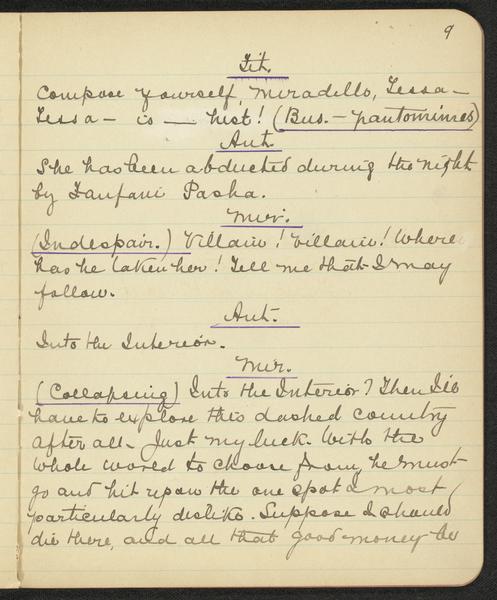 9
Tit.
Compose yourself, Miradillo, Tessa —
Tessa — is — hist! (Bus. — pantomimes)
Ant.
She has been abducted during the night
by Fanfani Pasha.
Mir.
(In despair.) Villain! Villain! Where
has he taken her! Tell me that I may
follow.
Ant.
Into the Interior.
Mir.
(Collapsing) Into the Interior? Then I'll
have to explore this dashed country
after all. Just my luck. With the
whole world to choose from, he must
go and hit upon the one spot I most
particularly dislike. Suppose I should
die there, and all that good money be